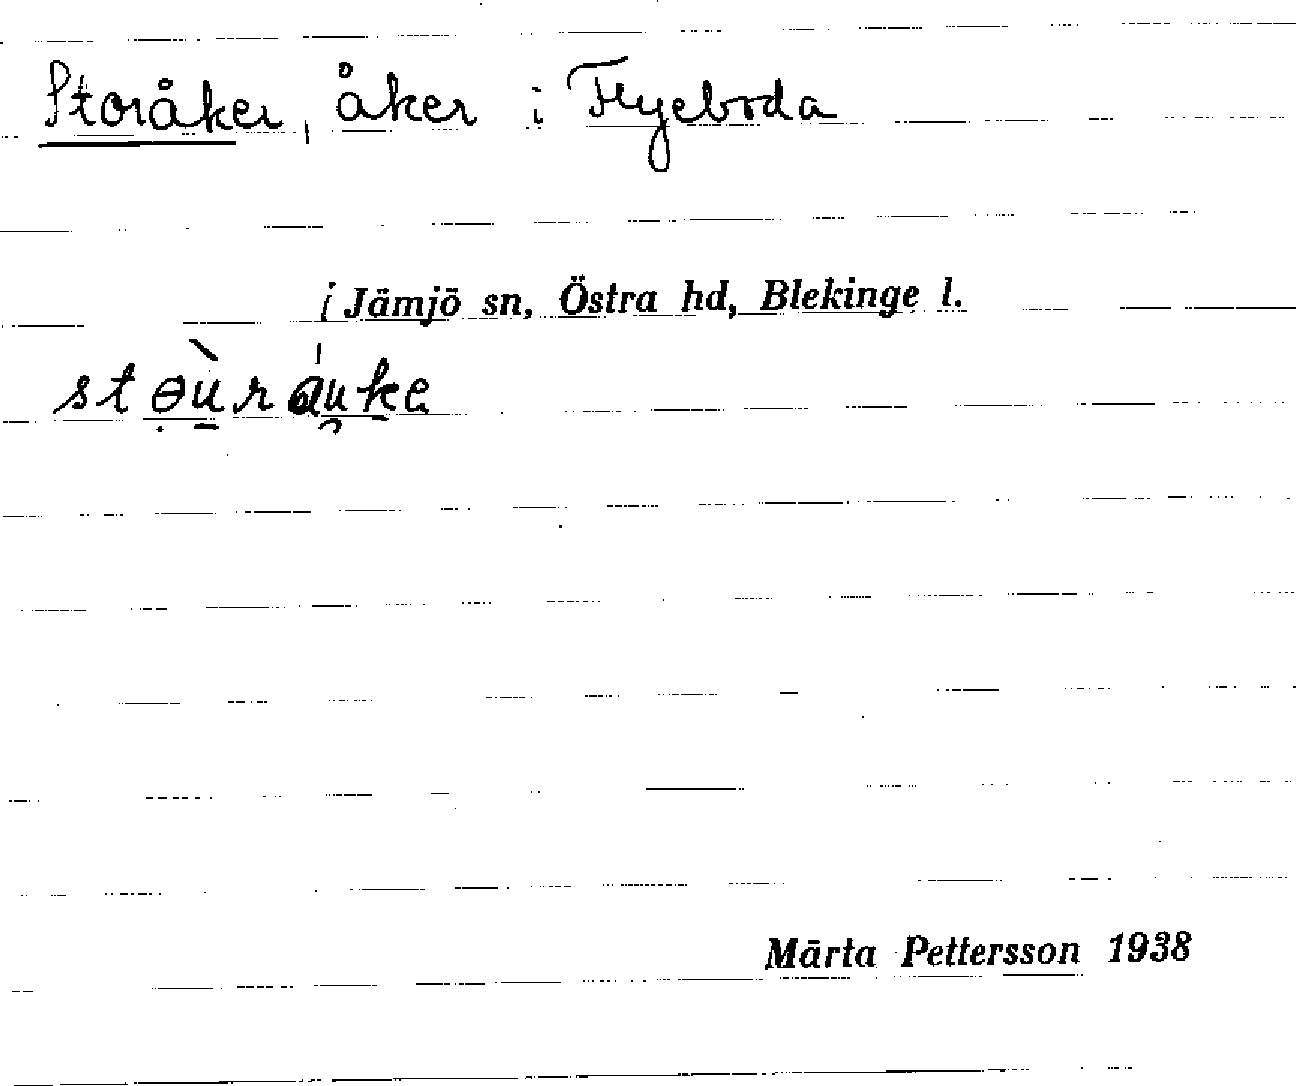 Storåker, åker i Flyeboda
i Jämjö sn, Östra hd, Blekinge l.
stɵ̀uráuka
Märta Pettersson 1938